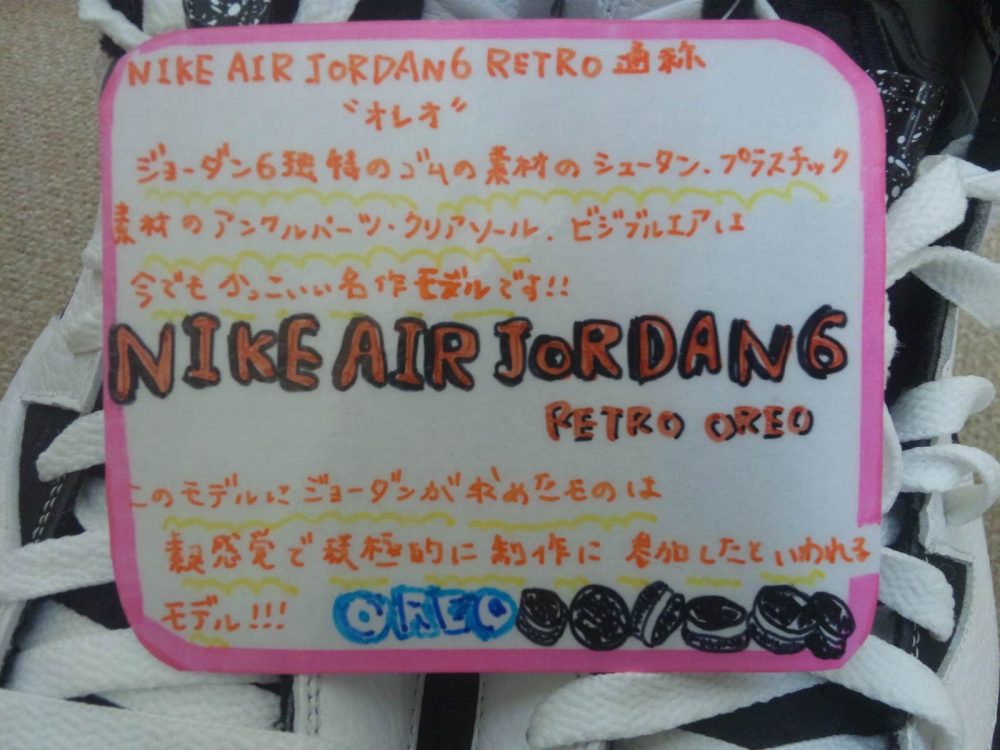 NIKE AIR JORDAN6 RETRO 通称
"オレオ"
ジョーダン6独特のゴムの素材のシュータン、プラスチック
素材のアンクルパーツ・クリアソール、ビジブルエアは
今でもかっこいい名作モデルです!!
NIKE AIR JORDAN6
RETRO OREO
このモデルにジョーダンが求めたモのは
素感覚で積極的に制作に参加したといわれる
モデル!!!
OREO